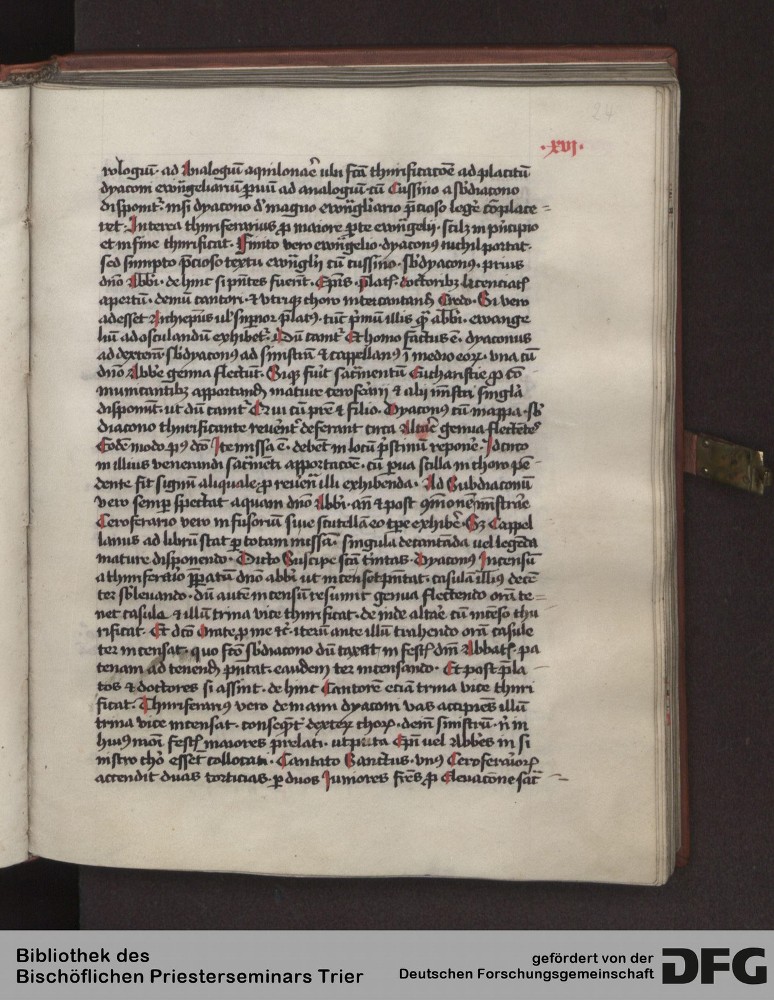 24
·xvj·
rologiū· ad Analogiū aquilonarē ubi fcā thurificatōē ad placitū
dyaconi ewāgeliariū ꝑuiū ad analogiū cū Cussino a sbdiacono
disponit̄· nisi dyacono d' magno ewāgl̄iario p̄cioso lege᷑ cōplace =
ret· Interea thuriferarius ꝓ maiore ꝑte ewāgelij· scilꝫ in p̄ncipio
et in fine thurificat· Finito vero ewāgelio· dyaconꝰ nichil portat·
sed sumpto p̄cioso textu ewāglij cū cussino· sbdyaconꝰ· prius
dn̄o Abb̄i· de hinc si p̄ntes fuerit· Ep̄is· p̄latꝭ· doctoribꝫ licenciatꝭ
apertū· demū cantori· ⁊ utriqꝫ choro intercantandū Credo· Si vero
adesset Archiep̄us ul' suꝑior p̄latꝰ· tūc p̄mū illis qᷓ abb̄i· ewange
liū ad osculandū exhibet᷑· Dū cantat᷑ Et homo factus ē· dyaconus
ad dexterā· sbdyaconꝰ ad sinistrā ⁊ cappellanꝰ ī medio eoꝝ· vna cū
dn̄o Abb̄e genua flectūt· Sicqꝫ fiūt sacr̄mentū Eucharistie ꝓ cō
municantibꝫ apportand' mature ceroferarij ⁊ alij mīstri singl̄a
disponūt· ut dū cantat᷑ Qui cū patre ⁊ filio· Dyaconꝰ cū mappa· sb
diacono thurificante reuent᷑ deferant circa Altare genua flectētes
Eodē modo· pꝰ dc̄o Ite missa ē· debet in locū p̄stinū repone᷑· Idcirco
in illius venerandi sacr̄mēti apportacōe· cū ꝑua scilla in choro pē -
dente fit signū aliquale· ꝓ reuerēcia illi exhibenda· Ad Subdiaconū
vero semꝑ spectat aquam dn̄o Abb̄i· an̄ ⁊ post ꝯmōnem mīstrare
Ceroferario vero infusoriū siue scutellā eo tꝑe exhibe᷑· Sꝫ Cappel
lanus ad librū stat ꝑ totam missā· singula decantāda uel legēda
mature disponendo· Dicto Suscipe scā trinitas· Dyaconꝰ Incensū
a thuriferario p̄ꝑatū dn̄o abb̄i ut incenset p̄ntat· casulā illiꝰ decē
ter sbleuando· dū autē incensū resumit genua flectendo orā te=
net casule ⁊ illū trina vice thurificat· de inde altare cū incēso thu
rificat· Et dc̄o Orate ꝓ me ⁊c· iterū ante illū trahendo orā casule
ter incensat· quo fc̄o sbdiacono dū taxat in festꝭ dn̄i Abbatꝭ· pa
tenam ad tenend' p̄ntat· eandem ter incensando· Et post p̄la -
tos ⁊ doctores si assint· de hinc Cantorē eciā trina vice thuri
ficat· Thuriferarius vero de manu dyaconi vas accipiens illū
trina vice incensat· conseqn̄t dexteꝝ choꝝ· demū sinistrū· n̄ in
hiusmōi festꝭ maiores prelati· utputa Ep̄i uel Abb̄es in si
nistro chō essēt collocati· Cantato Sanctus· vnꝰ Ceroferarioꝝ
accendit duas torticias· ꝑ duos Iuniores fr̄es ꝓ Eleuacōne sac̄ -
Bibliothek des
Bischöflichen Priesterseminars Trier
gefördert von der
Deutschen Forschungsgemeinschaft
DFG